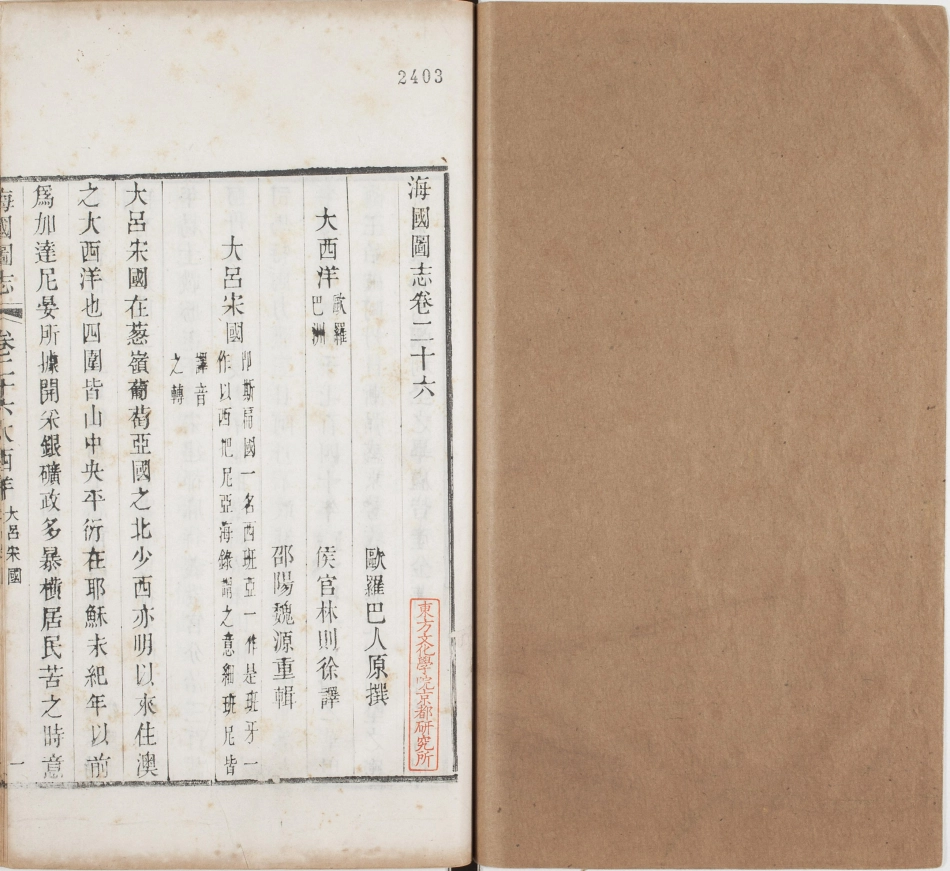 2403
海國圖志卷二十六
歐羅巴人原撰
大西洋
歐羅
巴洲
侯官林則徐譯
邵陽魏源重輯
大呂宋國
卽斯扁國一名西班亞一作是班牙一
作以西把尼亞海錄謂之意細班尼皆
譯音
之轉
大呂宋國在葱嶺葡萄亞國之北少西亦明以來住澳
之大西洋也四圍皆山中央平衍在耶穌未紀年以前
爲加達尼晏所據開采銀礦政多暴橫居民苦之時意
海國圖志
卷二十六大西洋
大呂宋國
一
東方文化學院京都研究所